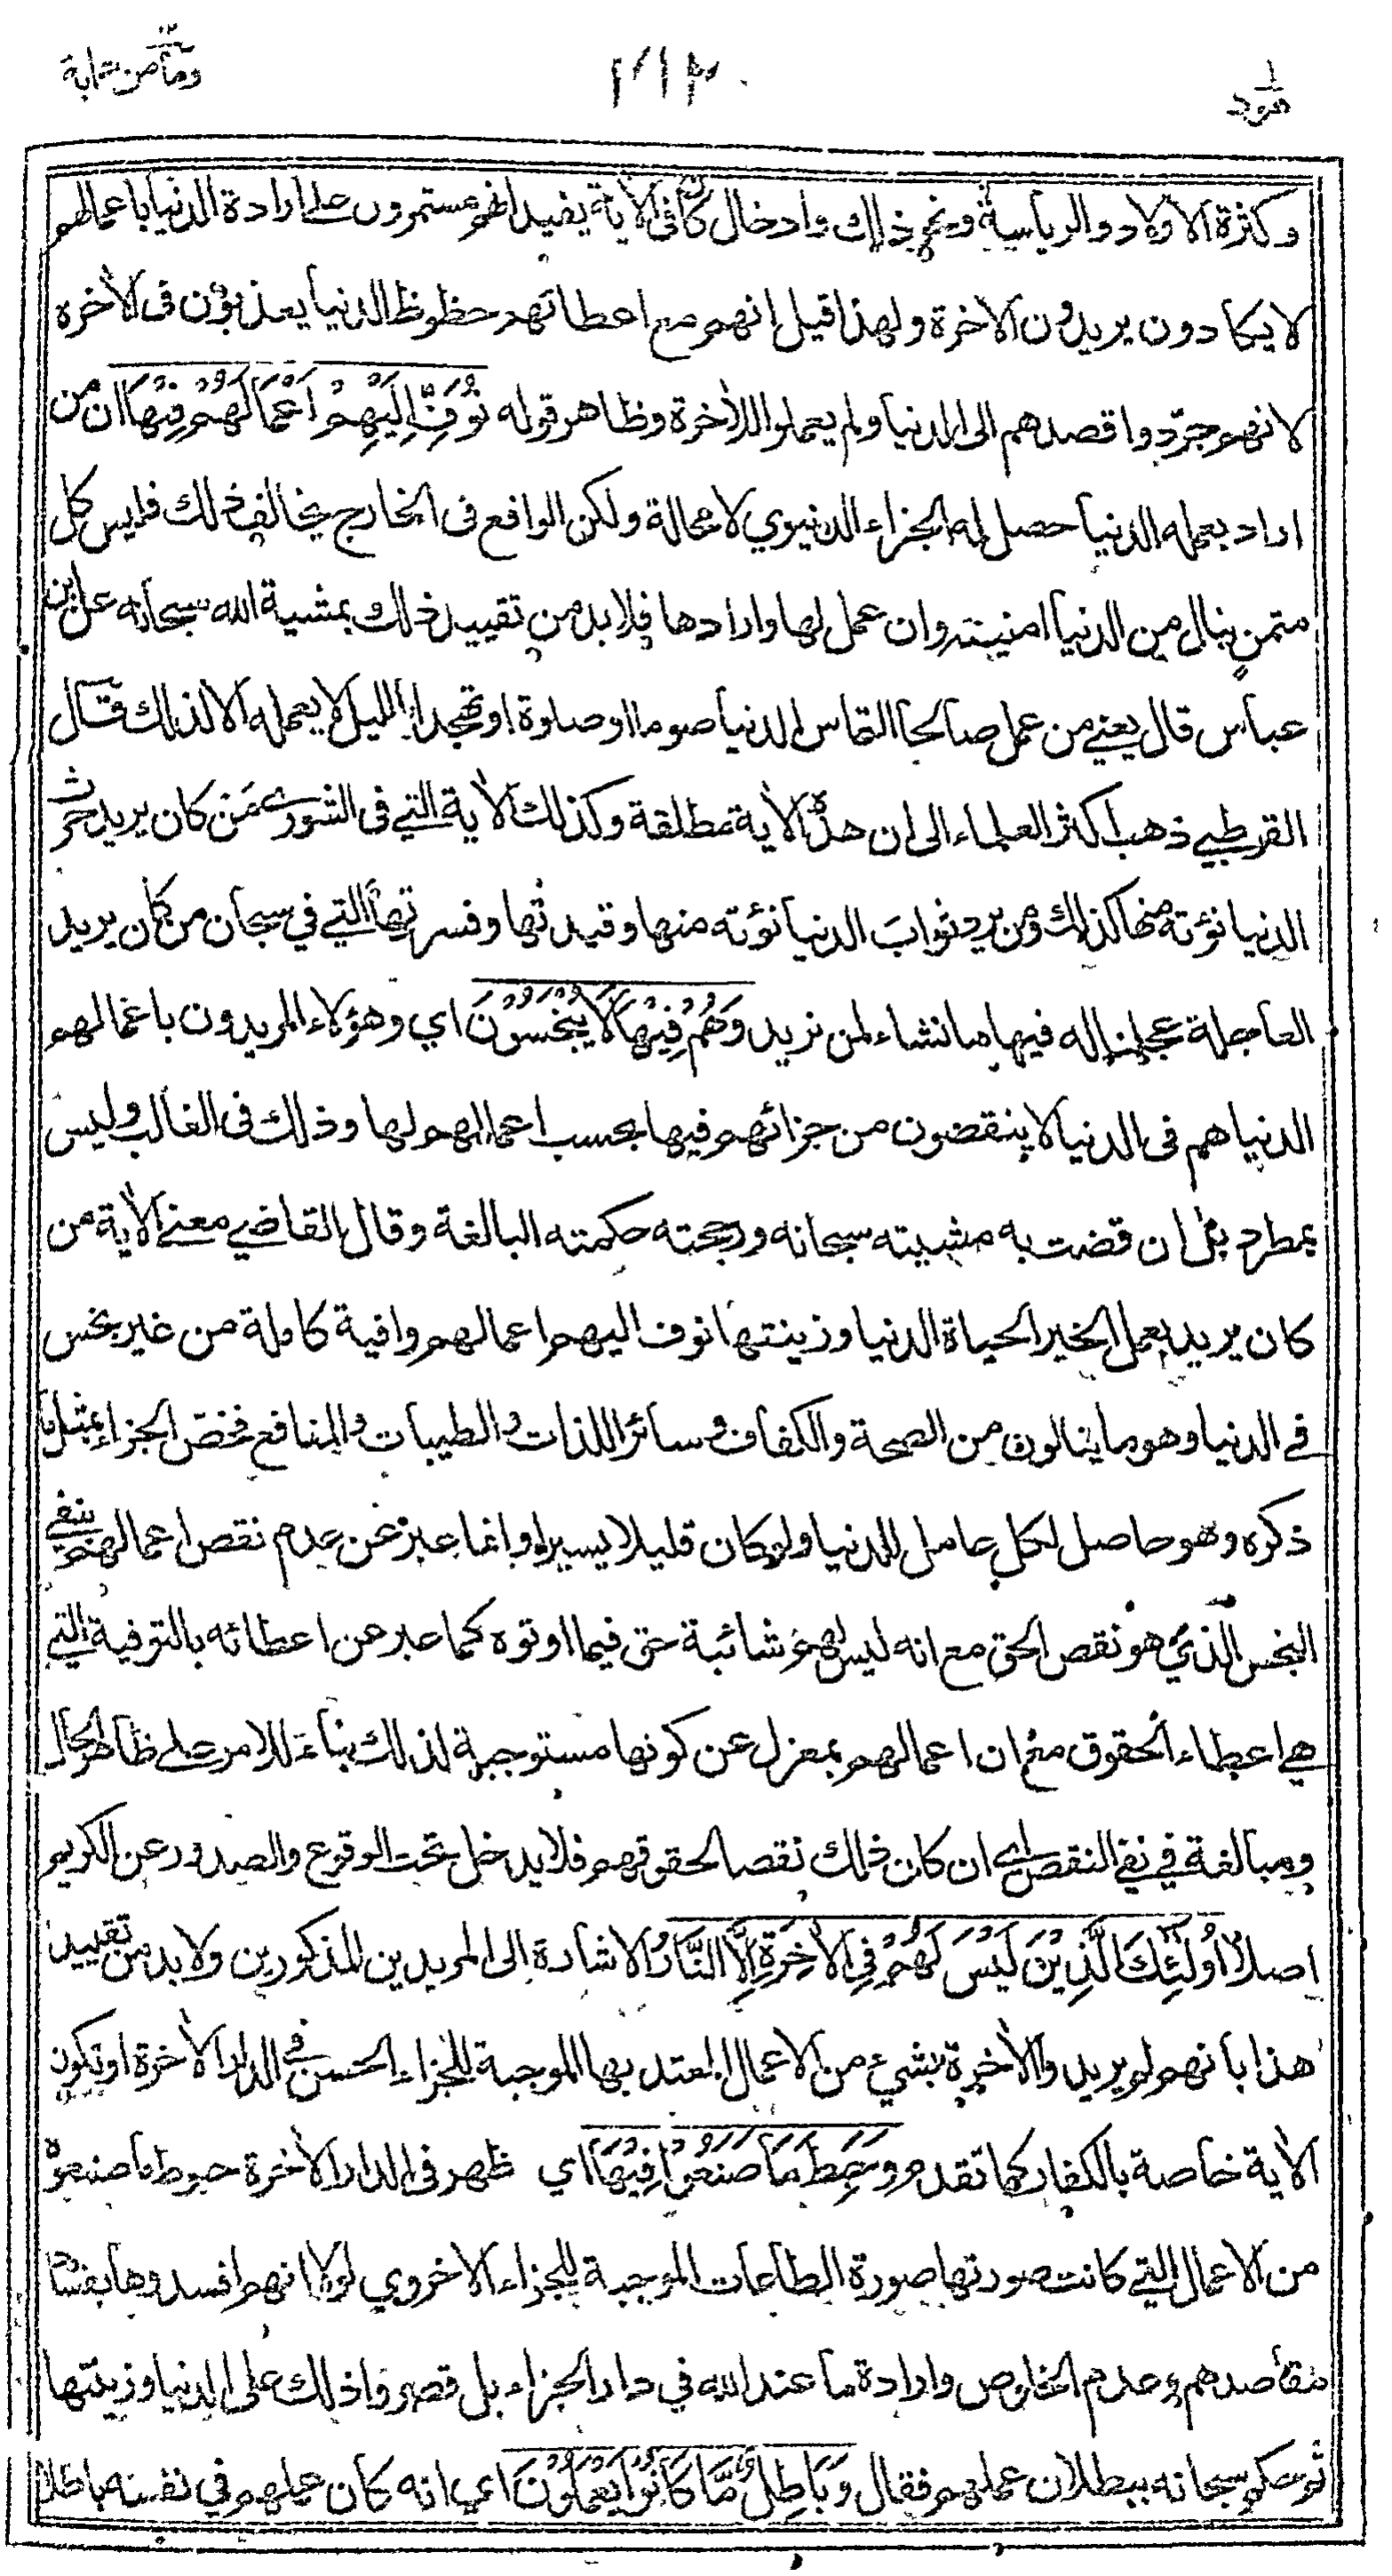 هود
٢١٣
ومآمن دابة
وكثرة الاولاد والرياسة ونحو ذلك وادخال كان في الأية يفيد انهم مستمرون على ارادة الدنيا باعمالهم
لا يكادون يريدون الاخرة ولهذا قيل انهم مع اعطائهم حظوظ الدنيا يعذبون في الأخرة
لانهم جرّدوا قصدهم الى الدنيا ولم يعملوا للأخرة وظاهر قوله نُوَفِّ اِلَيْهِمْ اَعْمَالَهُمْ فِيْهَا ان من
اراد بعمله الدنيا حصل له الجزاء الدنيوي لا محالة ولكن الواقع في الخارج يخالف ذلك فليس كل
متمنٍ ينال من الدنيا امنيته وان عمل لها وارادها فلا بد من تقييد ذلك بمشية الله سبحانه عن ابن
عباس قال يعني من عمل صالحا التماس الدنيا صوما او صلوة او تهجدا بالليل لا يعمله الا لذلك قال
القرطبي ذهب اكثر العلماء الى ان هذه الأية مطلقة وكذلك الأية التي في الشورى من كان يريد حرث
الدنيا نؤته منها كذلك ومن يرد ثواب الدنيا نؤته منها وقيدتها وفسرتها التي في سبحان من كان يريد
العاجلة عجلنا له فيها ما نشاء لمن نريد وَهُمْ فِيْهَا لَا يُبْخَسُوْنَ اي وهؤلاء المريدون باعمالهم
الدنيا هم في الدنيا لا ينقصون من جزائهم فيها بحسب اعمالهم لها وذلك في الغالب وليس
بمطرد بل ان قضت به مشيته سبحانه ورجحته حكمته البالغة وقال القاضي معنى الأية من
كان يريد بعمل الخير الحياة الدنيا وزينتها نوف اليهم اعمالهم وافية كاملة من غير بخس
في الدنيا وهو ما ينالون من الصحة والكفاف وسائر اللذات والطيبات والمنافع فخص الجزاء بمثل ما
ذكره وهو حاصل لكل عامل للدنيا ولو كان قليلا يسيرا وانما عبر عن عدم نقص اعمالهم بنفي
البخس الذي هو نقص الحق مع انه ليس لهم شائبة حق فيما اوتوه كما عبر عن اعطائه بالتوفية التي
هي اعطاء الحقوق مع ان اعمالهم بمعزل عن كونها مستوجبة لذلك بناء للامر على ظاهر الحال
ومبالغة في نفي النقص اي ان كان ذلك نقصا لحقوقهم فلا يدخل تحت الوقوع والصدور عن الكريم
اصلا اُولٰٓئِكَ الَّذِيْنَ لَيْسَ لَهُمْ فِي الْاٰخِرَةِ اِلَّا النَّارُ الاشارة الى المريدين المذكورين ولا بد من تقييد
هذا بانهم لم يريدوا الأخرة بشيء من الاعمال المعتد بها الموجبة للجزاء الحسن في الدار الأخرة او تكون
الأية خاصة بالكفار كما تقدم وَحَبِطَ مَا صَنَعُوْا فِيْهَا اي ظهر في الدار الأخرة حبوط ما صنعوه
من الاعمال التي كانت صورتها صورة الطاعات الموجبة للجزاء الاخروي لولا انهم افسدوها بفساد
مقاصدهم وعدم الخلوص وارادة ما عند الله في دار الجزاء بل قصروا ذلك على الدنيا وزينتها
ثم حكم سبحانه ببطلان عملهم فقال وَبَاطِلٌ مَّا كَانُوْا يَعْمَلُوْنَ اي انه كان عملهم في نفسه باطلا